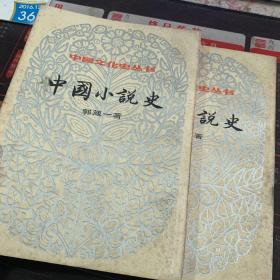 2016.1
36
中国文化史丛书
中國小說史
郭箴一著
化史丛书
說史
著